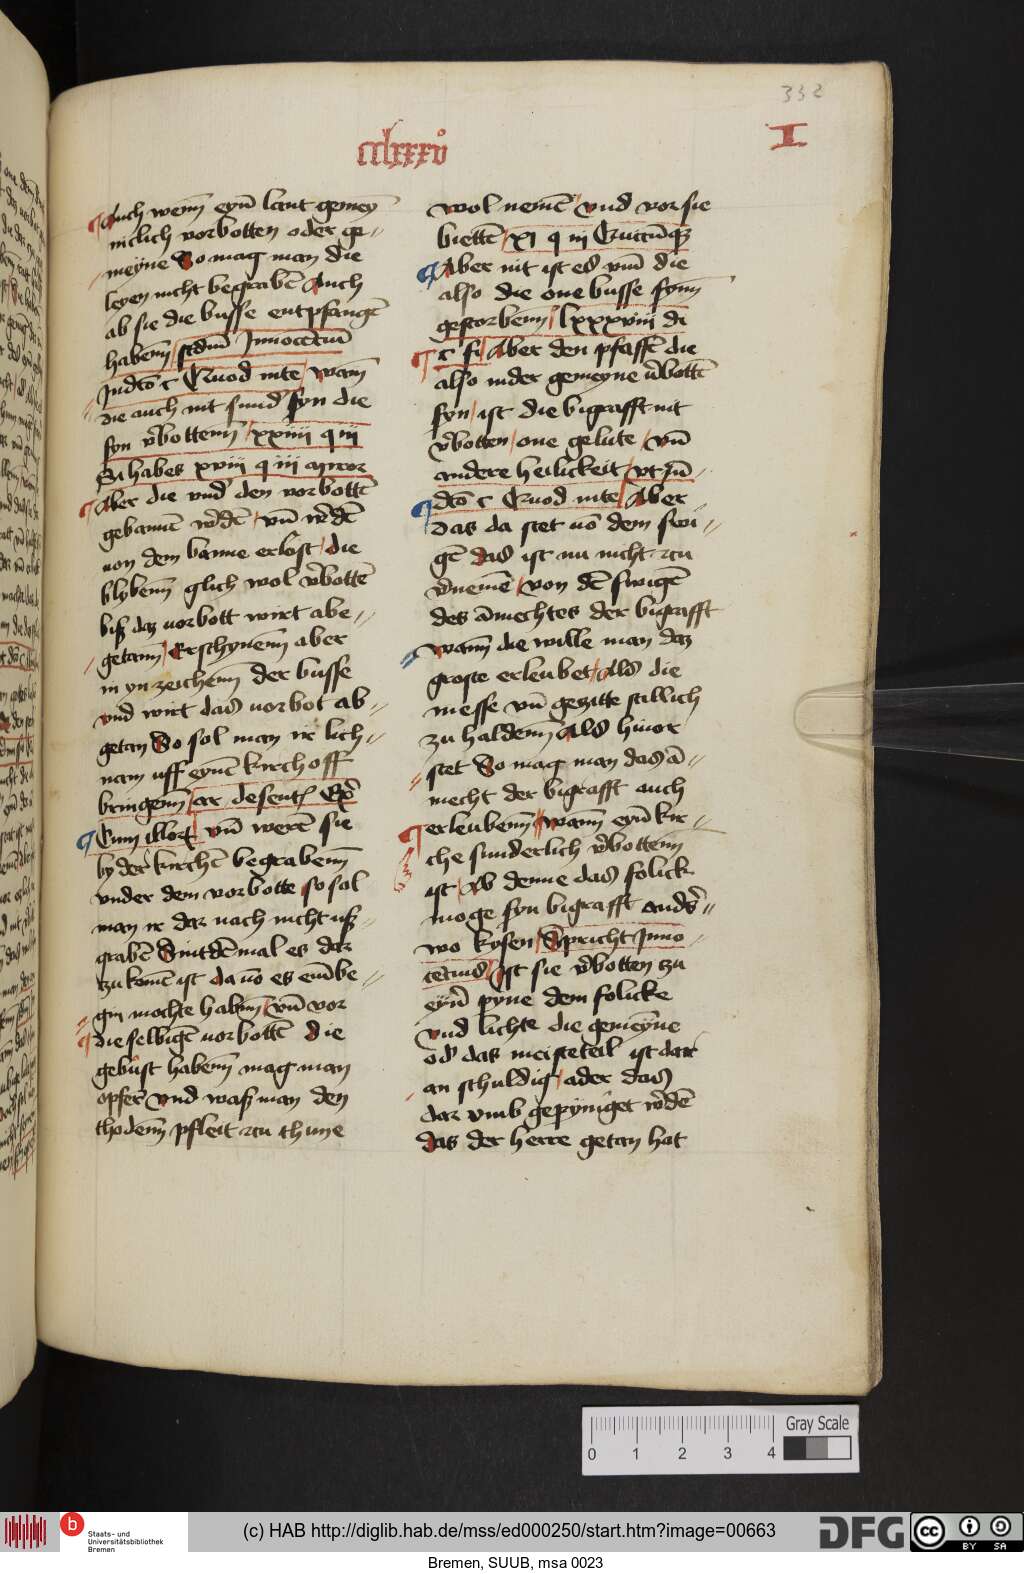 332
cclxxxvͦ
I
Auch wem̄ eyn̄ lant gemey
niclich vorbotten oder ge⸗
meyne So mag man die
leyen nicht begrabē Auch
ab sie die busse entpfangē
habem̄ scdm̄ Innocentiū
die auch nit sund̕ syn die
syn v̕bottem̄ xxiiii q iii
Aber die vnd̕ den vorbottē
gebannē w̕dē vn̄ w̕dē
von dem banne erlost die
blybem̄ glich wol v̕bottē
biß daz vorbott wirt abe⸗
getann Erschynem̄ aber
in yn zeichem̄ der busse
vnd wirt das vorbot ab⸗
getan So sol man ir lich⸗
nam uff eynē kirchoff
bringem̄
vn̄ werē sie
by der kirchē begrabem̄
vnder dem vorbotte so sol
man ir dar nach nicht uß⸗
grabē Sintdēmal es dar
zu komē ist da vō es entbe⸗
gin mochte habm̄ vn̄ vor
die selbigē vorbottē die
gebust habem̄ mag man
opfer̄ vnd waß man den
thodem̄ pfleit zcu thune
wol nemē vnd vor sie
biettē xi q iii
Aber nit ist es vm̄ die
also die one busse synn̄
gestorbem̄ lxxxviii di
c fi Aber den pfaffē die
also in der gemeyne v̕bottē
syn ist die bigrafft nit
v̕botten one gelute vn̄
andere heilickeit vt in⸗
dc̄o c Quod in te Aber
das da stet vō dem swi⸗
gē das ist nu nicht zcu
v̕nemē von dē swigē
des āmechtes der bigrafft
wann die wille man daz
groste erleubet Als die
messe vn̄ gezitte stillich
zu haldenn̄ Als hivor
stet So mag man das ā⸗
mecht der bigrafft auch
erleubem̄ wann eyn̄ kir⸗
che sunderlich v̕bottem̄
ist Ab denne das folick
moge syn bigrafft and̕s⸗
wo kysen Spricht Inno⸗
cētius Ist sie v̕botten zu
eyn̄ pyne dem folicke
vnd lichte die gemeyne
od̕ das meisteteil ist dar
an schuldig ader das
dar vmb gepyniget w̕dē
das der herre getan hat
0 1 2 3 4
Gray Scale
b
Staats- und
Universitätsbibliothek
Bremen
(c) HAB http://diglib.hab.de/mss/ed000250/start.htm?image=00663
DFG
cc BY SA
Bremen, SUUB, msa 0023